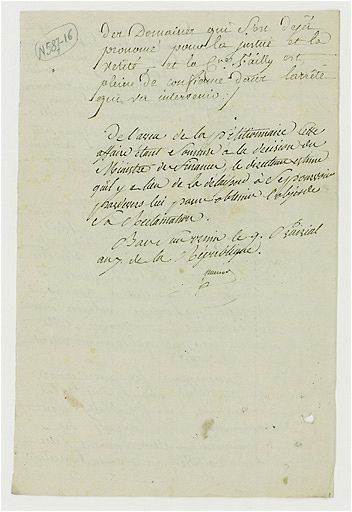 N587-16
des Domaines qui s'en deja
prononcé pour la justice et la
verité. et la Cne Failly est
pleine de confiance dans l'arrêté
qui va intervenir./
De l'aveu de la Pétitionnaire cette
affaire étant soumise a la decision du
Ministre des Finances, le directeur estime
qu'il y a lieu de la delaisser à se pourvoir
pardevers lui pour obtenir l'objet de
sa Reclamation.
Bar le 9. Prairial
an 7. de la République.